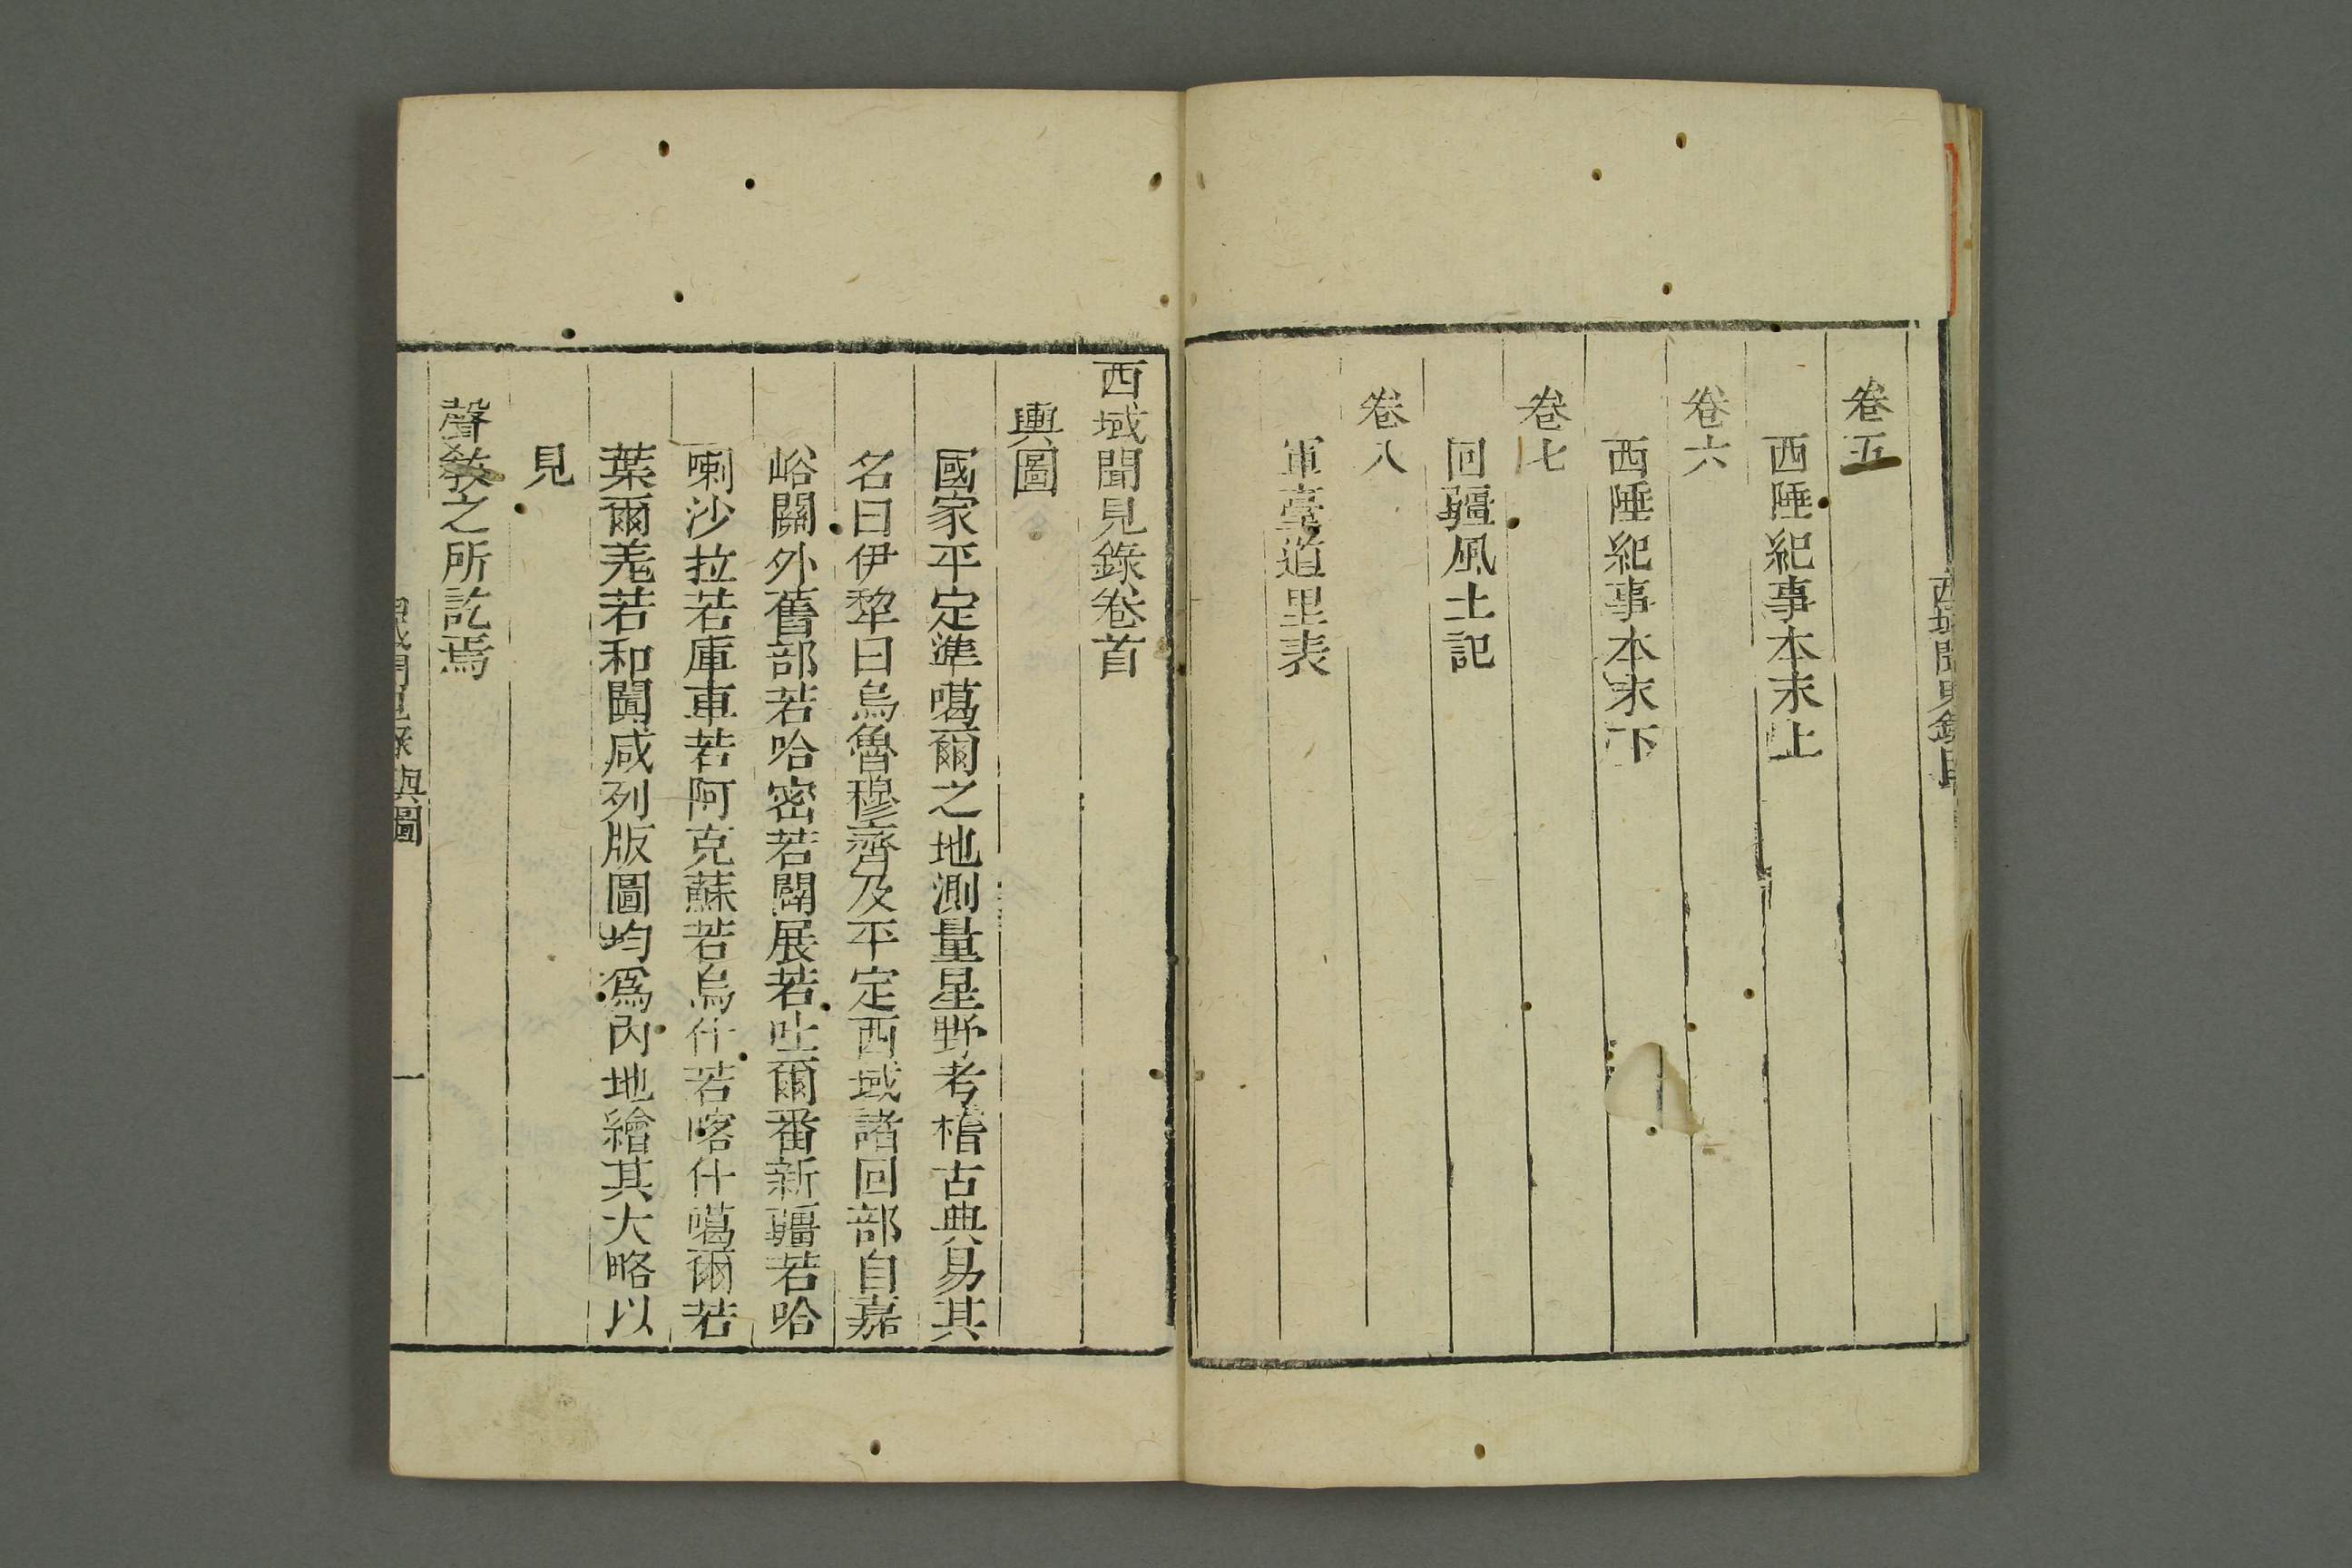 卷五
西陲紀事本末上
卷六
西陲紀事本末下
卷七
回疆風土記
卷八
軍臺道里表
西域聞見錄卷首
輿圖
國家平定準噶爾之地測量星野考稽古典易其
名曰伊犂曰烏魯穆齊及平定西域諸回部自嘉
峪關外舊部若哈密若闢展若吐爾番新疆若哈
喇沙拉若庫車若阿克蘇若烏什若喀什噶爾若
葉爾羌若和闐咸列版圖均爲內地繪其大略以
見
聲敎之所訖焉
輿圖
一